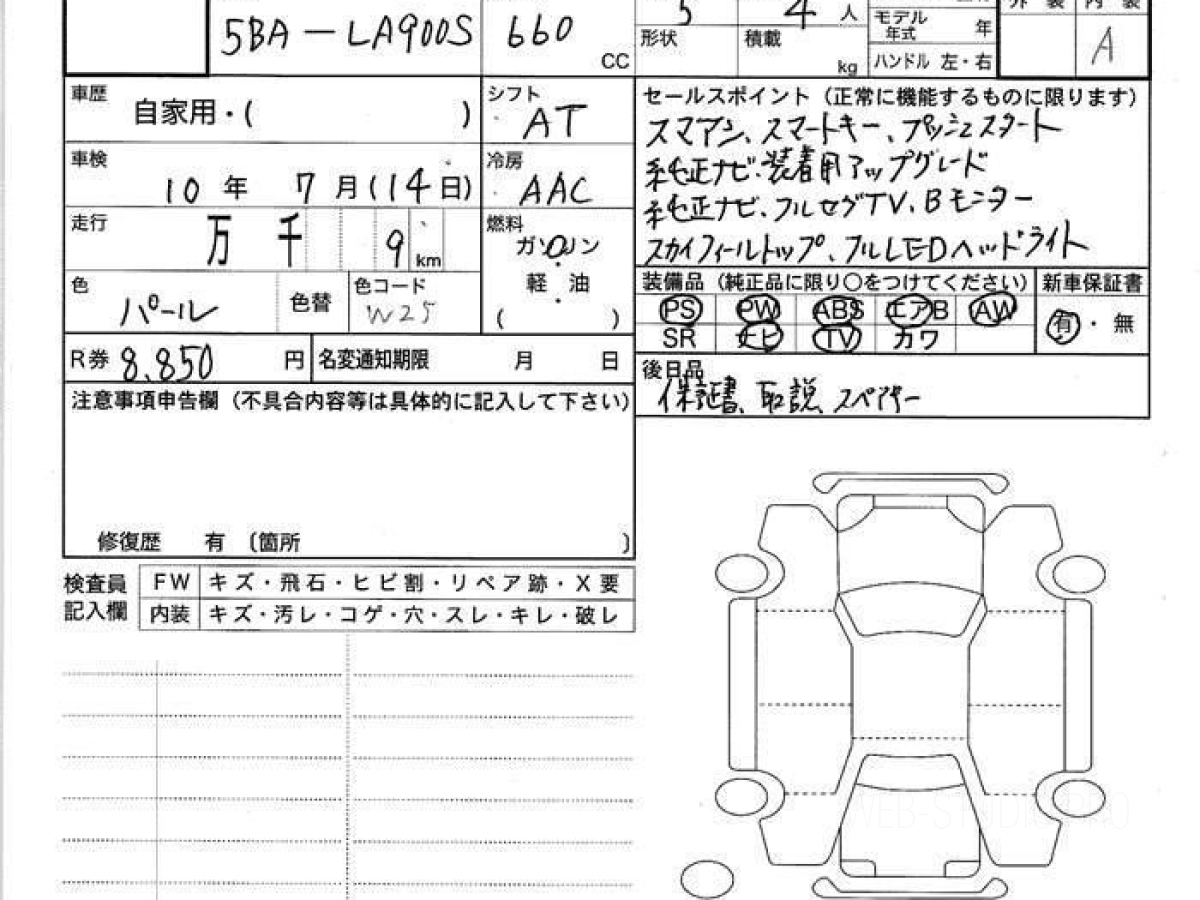 5BA-LA900S 660 CC
5 4 人 外装 内装
モデル年式 年
形状 積載 kg ハンドル 左・右 A
車歴 自家用・( )
シフト AT
車検 10年 7月(14日)
冷房 AAC
走行 万 千 9 km
燃料 ガソリン
軽・油
( )
色 パール 色替 色コード W25
R券 8,850 円 名変通知期限 月 日
注意事項申告欄(不具合内容等は具体的に記入して下さい)
修復歴 有 〔箇所 〕
セールスポイント(正常に機能するものに限ります)
スマアシ、スマートキー、プッシュスタート
純正ナビ装着用アップグレード
純正ナビ、フルセグTV、Bモニター
スカイフィールトップ、フルLEDヘッドライト
装備品(純正品に限り○をつけてください) 新車保証書
PS PW ABS エアB AW
SR ナビ TV カワ
有・無
後日品
保証書、取説、スペアキー
検査員記入欄
FW キズ・飛石・ヒビ割・リペア跡・X要
内装 キズ・汚レ・コゲ・穴・スレ・キレ・破レ
WEB-STUDIO PRO